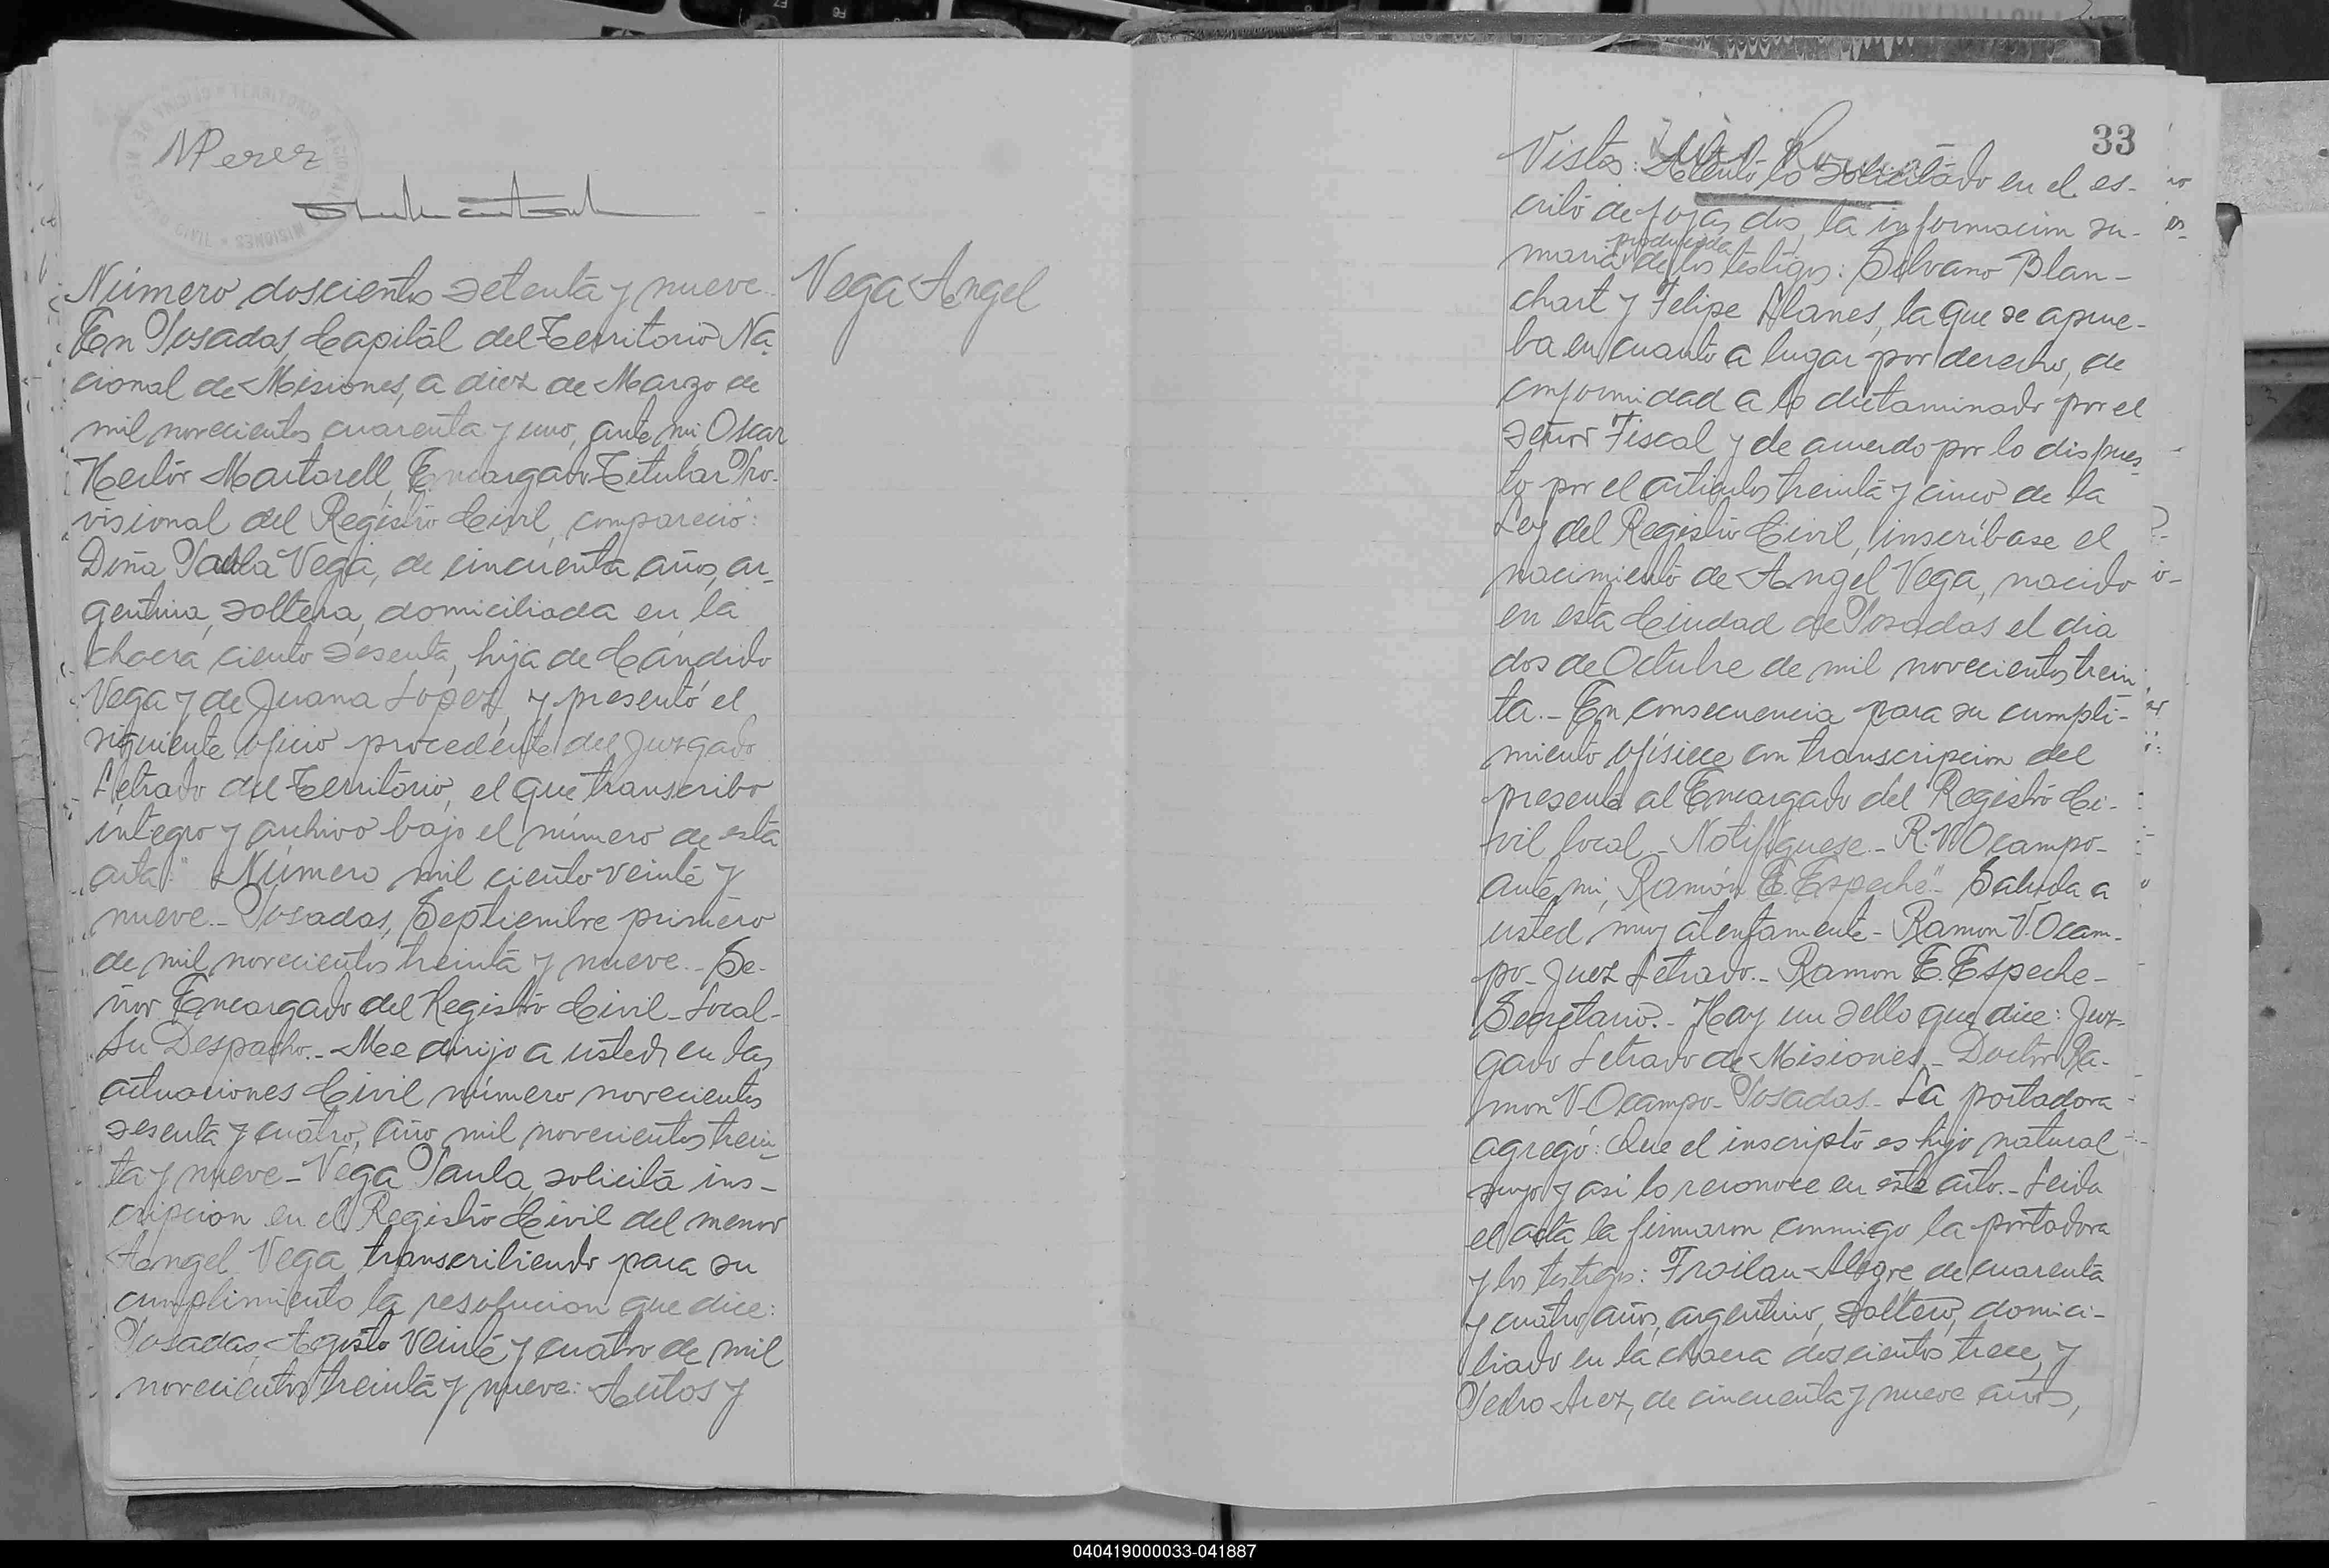 MPerez
Número doscientos setenta y nueve
Vega Angel
En Posadas, Capital del Territorio Na-
cional de Misiones, a diez de Marzo de
mil novecientos cuarenta y uno, ante mi, Oscar
Hector Martorell, Encargado Titular Pro-
visional del Registro Civil, compareció:
Doña Paula Vega, de cincuenta años, ar-
gentina, soltera, domiciliada en la
chacra ciento sesenta, hija de Cándido
Vega y de Juana López, y presentó el
siguiente oficio procedente del Juzgado
Letrado del Territorio, el que transcribo
íntegro y archivo bajo el número de esta
acta: "Número mil ciento veinte y
nueve.- Posadas, Septiembre primero
de mil novecientos treinta y nueve.- Se-
ñor Encargado del Registro Civil - Local -
Su Despacho.- Me dirijo a usted, en las
actuaciones Civil número novecientos
sesenta y cuatro, año mil novecientos trein-
ta y nueve - Vega Paula, solicita ins-
cripcion en el Registro Civil del menor
Angel Vega, transcribiendo para su
cumplimiento la resolucion que dice:
Posadas, Agosto veinte y cuatro de mil
novecientos treinta y nueve: Autos y
33
Vistos: Atento lo solicitado en el es-
crito de fojas dos, la informacion su-
producida
maria de los testigos: Silvano Blan-
chart y Felipe Alanes, la que se aprue-
ba en cuanto a lugar por derecho, de
conformidad a lo dictaminado por el
señor Fiscal y de acuerdo por lo dispues-
to por el articulos treinta y cinco de la
Ley del Registro Civil, inscríbase el
nacimiento de Angel Vega, nacido
en esta Ciudad de Posadas el dia
dos de Octubre de mil novecientos trein
ta.- En consecuencia para su cumpli-
miento ofísiece con transcripcion del
presente al Encargado del Registro Ci-
vil local.- Notifíquese.- R. V. Ocampo-
ante mi, Ramón E. Espeche".- Saluda a
usted muy atentamente - Ramon V. Ocam-
po - Juez Letrado.- Ramon E. Espeche -
Secretario.- Hay un sello que dice: Juz-
gado Letrado de Misiones - Doctor Ra-
mon V. Ocampo - Posadas - La portadora
agregó: Que el inscripto es hijo natural
suyo y asi lo reconoce en este acto.- Leida
el acta la firmaron conmigo la portadora
y los testigos: Froilan Alegre de cuarenta
y cuatro años, argentino, soltero, domici-
liado en la chacra doscientos trece, y
Pedro Arez, de cincuenta y nueve años,
040419000033-041887